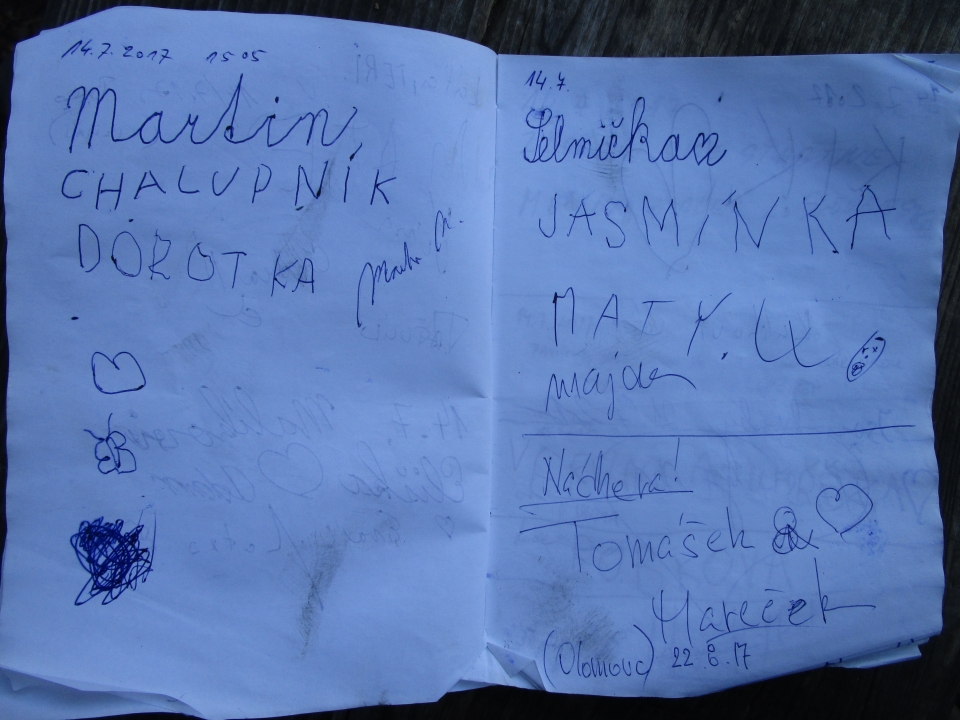 14.7.2017 15 05
Martin,
CHALUPNÍK
DOROTKA
14.7.
Selmička
JASMÍNKA
MATY.
majda
Nádhera!
Tomášek &
Mareček
(Olomouc) 22.8.17